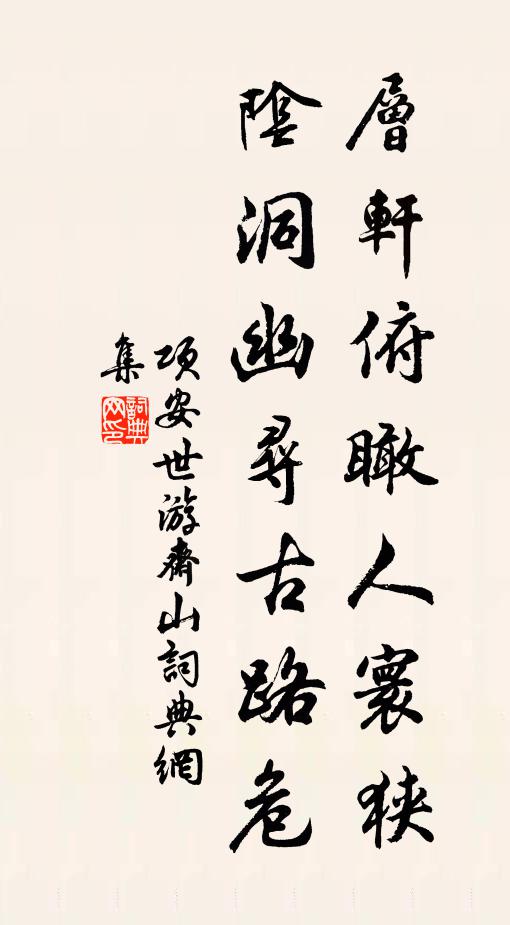 層軒俯瞰人寰狹
陰洞幽尋古路危
項安世游齊山詞典網
集
詞典網印